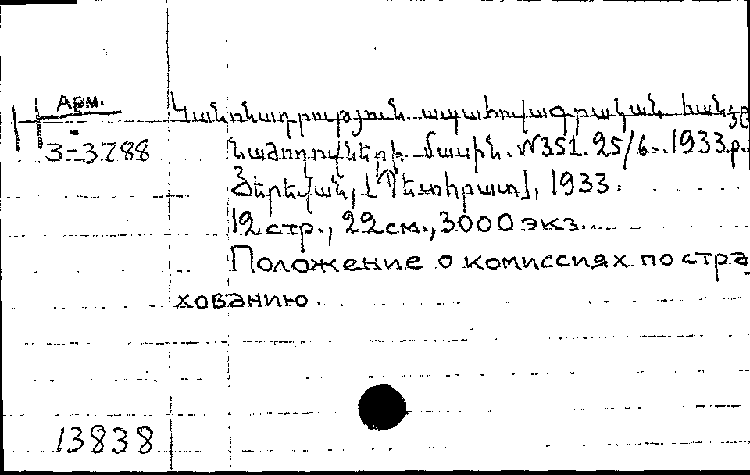 Арм.
3-3788
Կանոնադրություն ապահովագրական հանձ
նաժողովների մասին. N351. 25/6-. 1933.թ.
Յերեվան, [Պետհրատ], 1933.
12 стр., 22 см., 3000 экз.
Положение о комиссиях по стра
хованию
13838